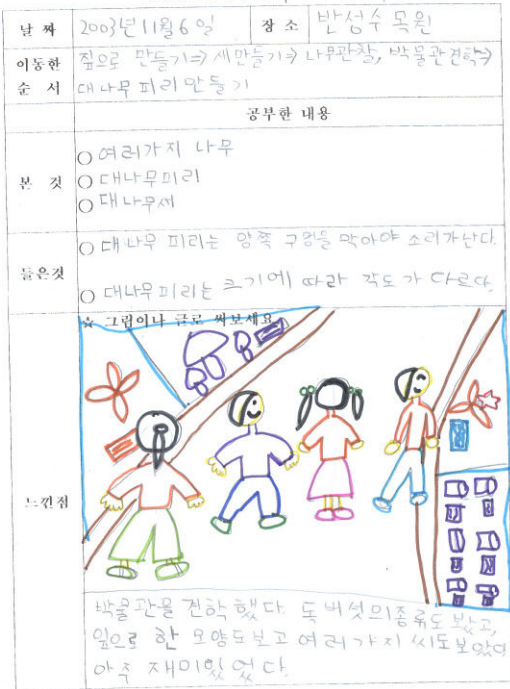 날 짜 2003년 11월 6일 장 소 반성수목원
이동한 순 서 짚으로 만들기⇒ 새만들기⇒ 나무관찰, 박물관견학⇒
대나무피리만들기
공부한 내용
본 것
○ 여러가지 나무
○ 대나무피리
○ 대나무새
들은것
○ 대나무 피리는 양쪽 구멍을 막아야 소리가난다.
○ 대나무피리는 크기에 따라 각도가 다르다.
☆ 그림이나 글로 써보세요
느낀점
박물관을 견학했다. 독버섯의종류도 봤고,
잎으로 한 모양도보고 여러가지 씨도보았다
아주 재미있었다.